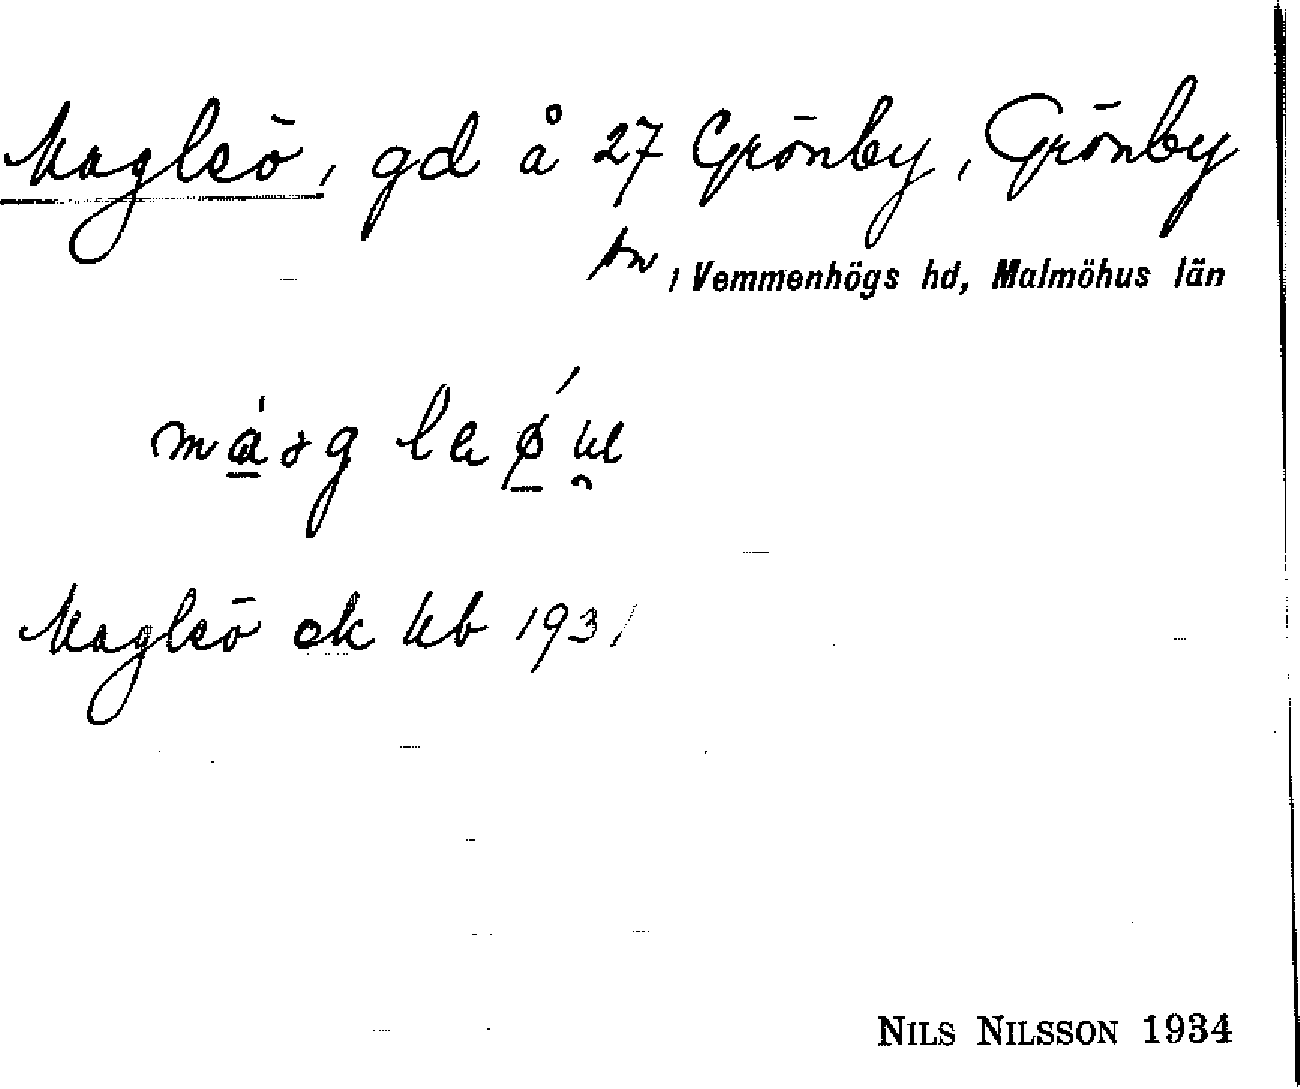 Magleö, gd å 27 Grönby, Grönby
sn, Vemmenhögs hd, Malmöhus län
Magleö ek kb 1931
NILS NILSSON 1934